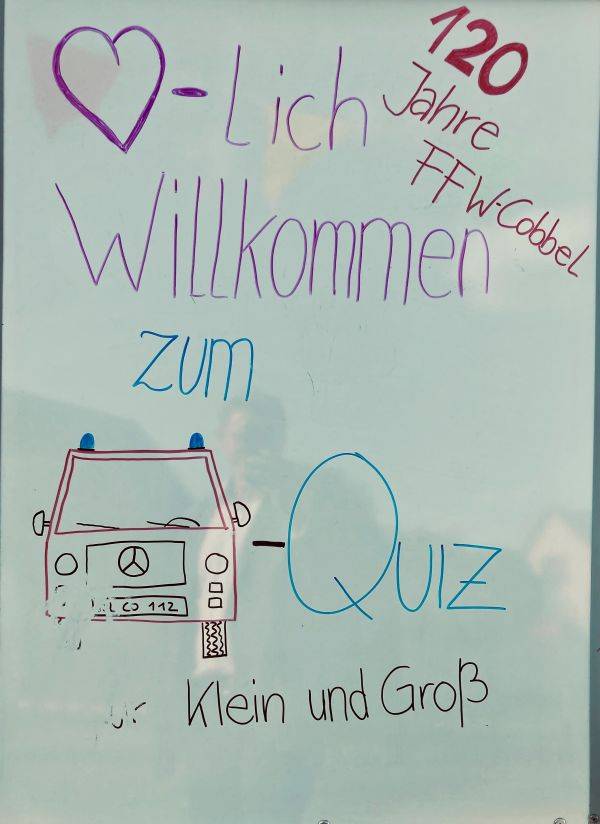 -lich
120
Jahre
FFW-Cobbel
Willkommen
zum
-Quiz
CO 112
Klein und Groß